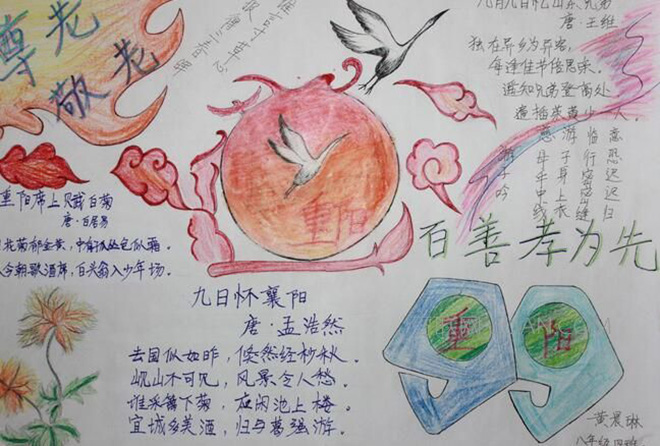 尊老
敬老
谁言寸草心
报得三春晖
九月九日忆山东兄弟
唐·王维
独在异乡为异客,
每逢佳节倍思亲。
遥知兄弟登高处
遍插茱萸少一人。
游子吟
慈母手中线
游子身上衣
临行密密缝
意恐迟迟归
重阳
百善孝为先
重阳席上赋白菊
唐·白居易
花菊郁金黄,中有孤丛色似霜。
今朝歌酒席,白头翁入少年场。
九日怀襄阳
唐·孟浩然
去国似如昨,倏然经杪秋。
岘山不可见,风景令人愁。
谁采篱下菊,应闲池上楼。
宜城多美酒,归与葛强游。
重阳
黄晨琳
八年级